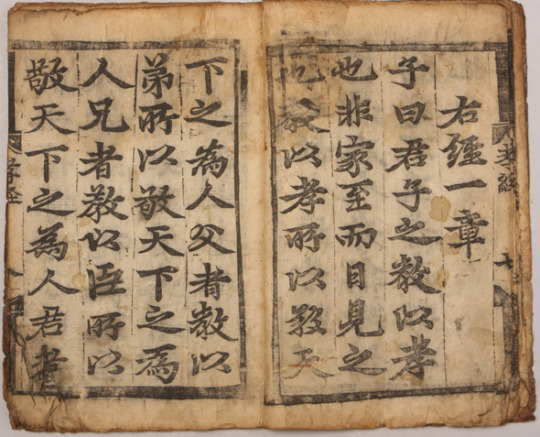 孝經
右經一章
子曰君子之教以孝
也非家至而日見之
也教以孝所以敬天
下之為人父者教以
弟所以敬天下之為
人兄者教以臣所以
敬天下之為人君者
孝經